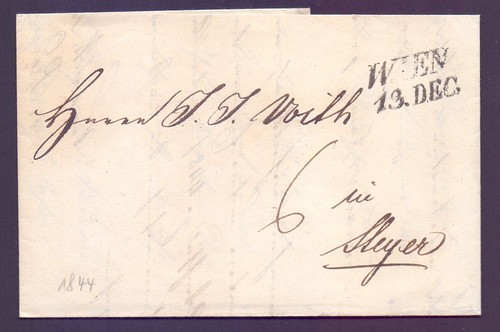 WIEN
13. DEC.
Herrn J. J. Voith
6
in
Steyer
1844